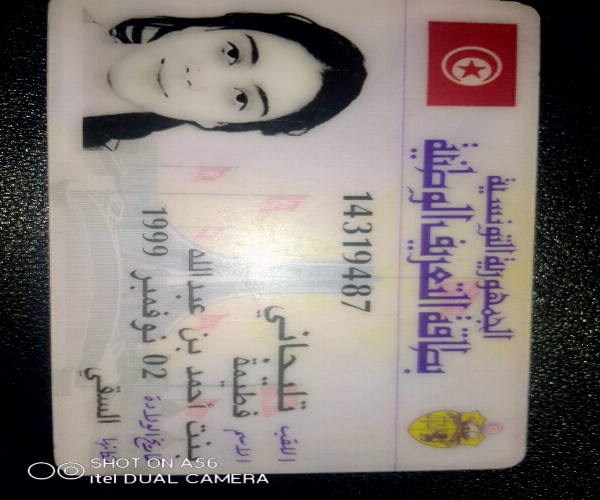 الجمهورية التونسية
بطاقة التعريف الوطنية
14319487
اللقب تليجاني
الاسم فطيمة
بنت أحمد بن عبدالله
تاريخ الولادة 02 نوفمبر 1999
مكانها السقي
SHOT ON A56
itel DUAL CAMERA